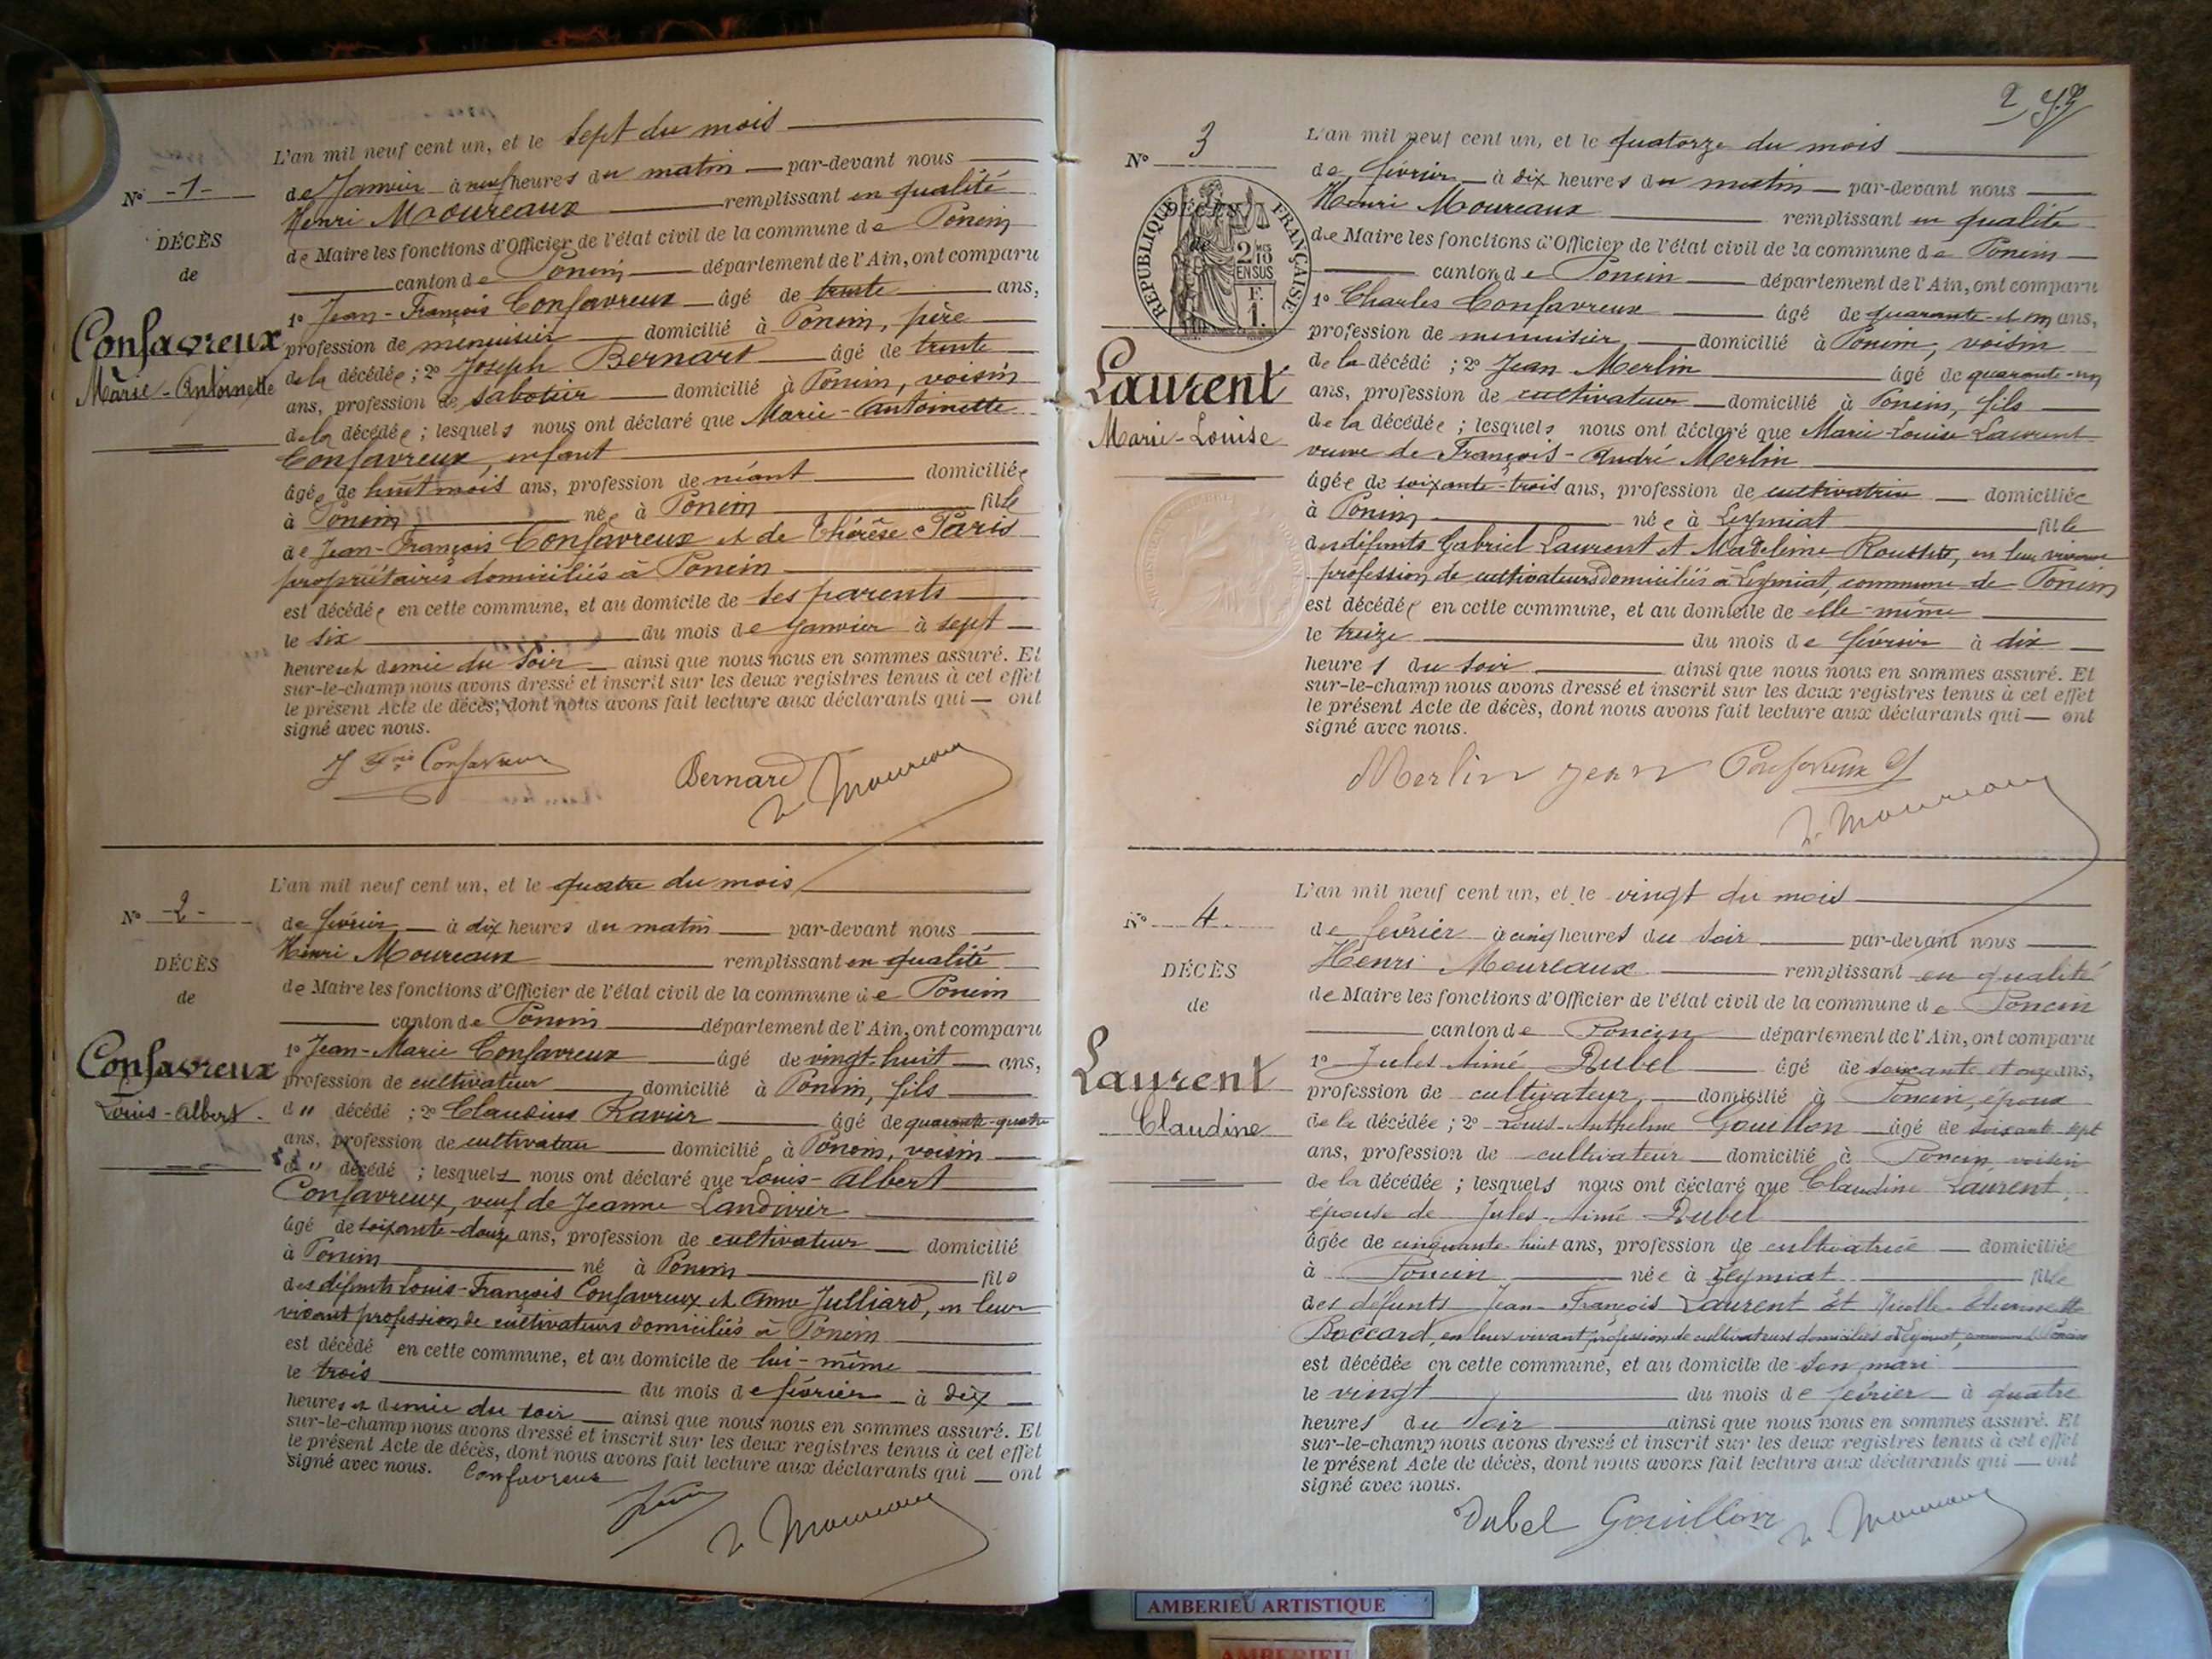 N° -1-
DÉCÈS
de
Confavreux
Marie-Antoinette
L'an mil neuf cent un, et le sept du mois
de Janvier à neuf heures du matin par-devant nous
Henri Moureaux remplissant en qualité
de Maire les fonctions d'Officier de l'état civil de la commune de Poncin
canton de Poncin département de l'Ain, ont comparu
1° Jean-François Confavreux âgé de trente ans,
profession de menuisier domicilié à Poncin, père
de la décédée ; 2° Joseph Bernard âgé de trente
ans, profession de sabotier domicilié à Poncin, voisin
de la décédée ; lesquels nous ont déclaré que Marie-Antoinette
Confavreux, enfant
âgée de huit mois ans, profession de néant domiciliée
à Poncin née à Poncin fille
de Jean-François Confavreux et de Thérèse Paris
propriétaires domiciliés à Poncin
est décédée en cette commune, et au domicile de ses parents
le six du mois de Janvier à sept
heures et demie du soir ainsi que nous nous en sommes assuré. Et
sur-le-champ nous avons dressé et inscrit sur les deux registres tenus à cet effet
le présent Acte de décès, dont nous avons fait lecture aux déclarants qui — ont
signé avec nous.
J Fois Confavreux
Bernard
h. Moureaux
N° -2-
DÉCÈS
de
Confavreux
Louis-Albert
L'an mil neuf cent un, et le quatre du mois
de février à dix heures du matin par-devant nous
Henri Moureaux remplissant en qualité
de Maire les fonctions d'Officier de l'état civil de la commune de Poncin
canton de Poncin département de l'Ain, ont comparu
1° Jean-Marie Confavreux âgé de vingt-huit ans,
profession de cultivateur domicilié à Poncin, fils
d" décédé ; 2° Claudius Ravier âgé de quarante-quatre
ans, profession de cultivateur domicilié à Poncin, voisin
d" décédé ; lesquels nous ont déclaré que Louis-Albert
Confavreux, veuf de Jeanne Landivier
âgé de soixante-douze ans, profession de cultivateur domicilié
à Poncin né à Poncin fils
des défunts Louis-François Confavreux et Anne Julliard, en leur
vivant profession de cultivateurs domiciliés à Poncin
est décédé en cette commune, et au domicile de lui-même
le trois du mois de février à dix
heures et demie du soir ainsi que nous nous en sommes assuré. Et
sur-le-champ nous avons dressé et inscrit sur les deux registres tenus à cet effet
le présent Acte de décès, dont nous avons fait lecture aux déclarants qui — ont
signé avec nous.
Confavreux
h. Moureaux
2
N° 3
DÉCÈS
RÉPUBLIQUE FRANÇAISE
2/10 EN SUS
F. 1.
Laurent
Marie-Louise
L'an mil neuf cent un, et le quatorze du mois
de février à dix heures du matin par-devant nous
Henri Moureaux remplissant en qualité
de Maire les fonctions d'Officier de l'état civil de la commune de Poncin
canton de Poncin département de l'Ain, ont comparu
1° Charles Confavreux âgé de quarante et un ans,
profession de menuisier domicilié à Poncin, voisin
de la décédé ; 2° Jean Merlin âgé de quarante-un
ans, profession de cultivateur domicilié à Poncin, fils
de la décédée ; lesquels nous ont déclaré que Marie-Louise Laurent
veuve de François-André Merlin
âgée de soixante-trois ans, profession de cultivatrice domiciliée
à Poncin née à Leymiat fille
des défunts Gabriel Laurent et Madeleine Rousset, en leur vivant
profession de cultivateurs domiciliés à Leymiat, commune de Poncin
est décédée en cette commune, et au domicile de elle-même
le treize du mois de février à dix
heures du soir ainsi que nous nous en sommes assuré. Et
sur-le-champ nous avons dressé et inscrit sur les deux registres tenus à cet effet
le présent Acte de décès, dont nous avons fait lecture aux déclarants qui — ont
signé avec nous.
Merlin jean Confavreux
h. Moureaux
N° 4
DÉCÈS
de
Laurent
Claudine
L'an mil neuf cent un, et le vingt du mois
de février à cinq heures du soir par-devant nous
Henri Moureaux remplissant en qualité
de Maire les fonctions d'Officier de l'état civil de la commune de Poncin
canton de Poncin département de l'Ain, ont comparu
1° Jules Aimé Dubel âgé de soixante et onze ans,
profession de cultivateur, domicilié à Poncin, époux
de la décédée ; 2° Louis-Anthelme Gouillon âgé de soixante-sept
ans, profession de cultivateur domicilié à Poncin, voisin
de la décédée ; lesquels nous ont déclaré que Claudine Laurent,
épouse de Jules-Aimé Dubel
âgée de cinquante-huit ans, profession de cultivatrice domiciliée
à Poncin née à Leymiat fille
des défunts Jean-François Laurent et Nicolle-Etiennette
Boccard, en leur vivant profession de cultivateurs domiciliés à Leymiat, commune de Poncin
est décédée en cette commune, et au domicile de son mari
le vingt du mois de février à quatre
heures du soir ainsi que nous nous en sommes assuré. Et
sur-le-champ nous avons dressé et inscrit sur les deux registres tenus à cet effet
le présent Acte de décès, dont nous avons fait lecture aux déclarants qui — ont
signé avec nous.
Dubel Gouillon h. Moureaux
AMBERIEU ARTISTIQUE
AMBERIEU